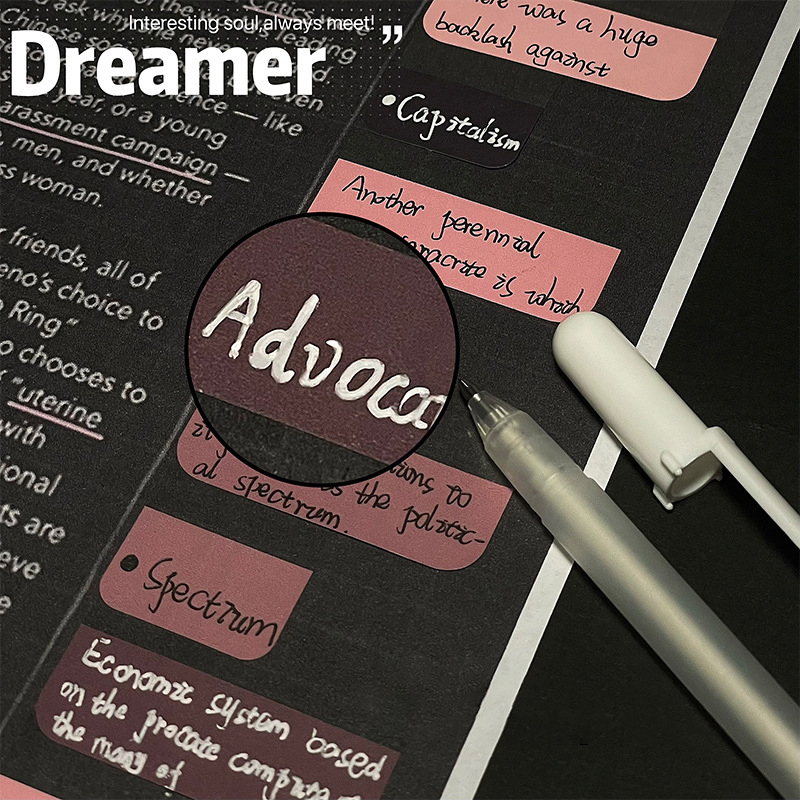 Interesting soul,always meet!
Dreamer
”
leading
even
ence — like
year, or a young
arassment campaign —
, men, and whether
ss woman.
r friends, all of
eno's choice to
Ring"
o chooses to
"uterine
with
ional
ts are
eve
e
was a huge
backlash against
• Capitalism
Another perennial
is which
Advoca
to
is the politic-
al spectrum.
• Spectrum
Economic system based
on the
the many of